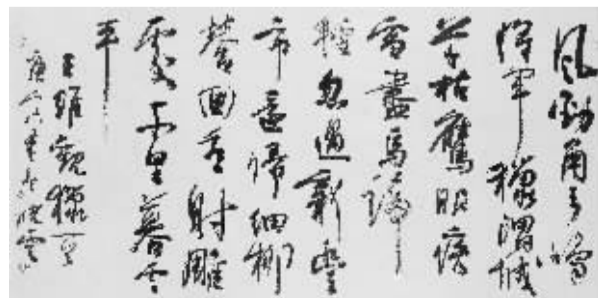 風勁角弓鳴
將軍獵渭城
草枯鷹眼疾
雪盡馬蹄
輕忽過新豐
市還歸細柳
營回看射雕
處千里暮雲
平
王維觀獵